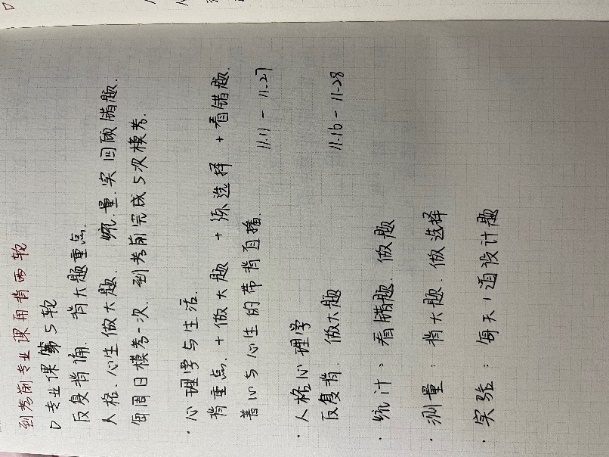 到考前专业课再背两轮
▷ 专业课第5轮
反复背诵、背大题重点.
人格、心生做大题、统.量.实回顾错题.
每周日模考一次. 到考前完成5次模考.
· 心理学与生活.
背重点. + 做大题 + 练选择 + 看错题.
普心与心生的带背直播. 11.11 - 11.27
· 人格心理学
反复背. 做大题 11.16 - 11.28
· 统计: 看错题. 做题
· 测量: 背大题. 做选择
· 实验: 每天1道设计题